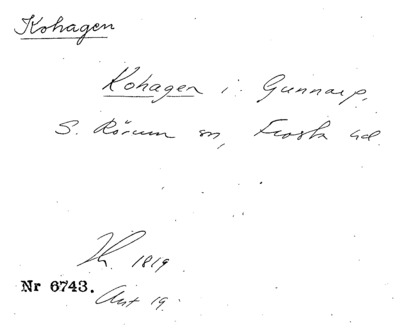 Kohagen
Kohagen i Gunnarp,
S. Rörum sn, Frosta hd.
1819.
Nr 6743.
Akt 19.